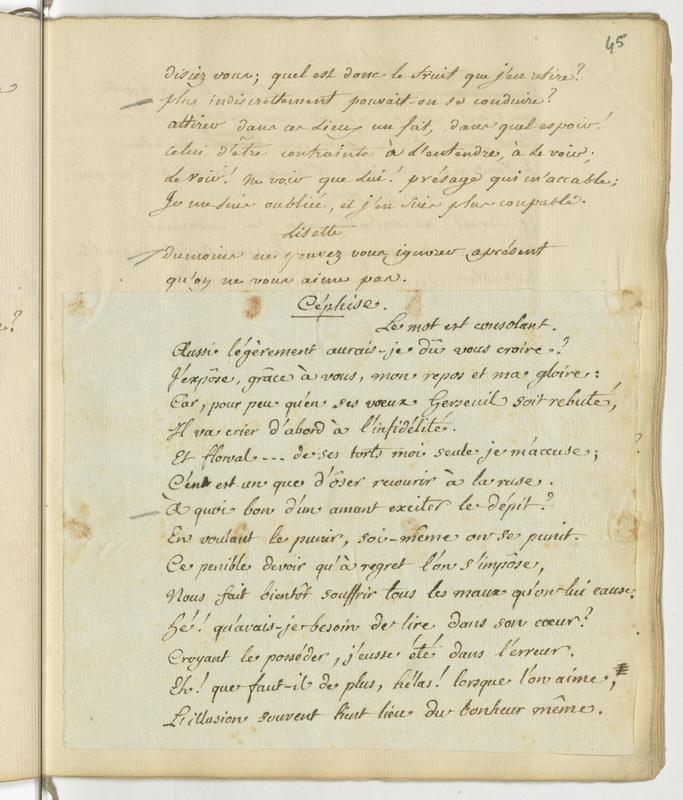 45
disiez vous; quel est donc le fruit que j'en retire?
plus indiscrettement pouvait-on se conduire?
attirer dans ces lieux un fat, dans quel espoir!
celui d'être contrainte à l'entendre, à le voir;
le voir! ne voir que lui! présage qui m'accable;
Je me suis oubliée, et j'en suis plus coupable.
Lisette
dumoins ne pouvez vous ignorer aprésent
qu'on ne vous aime pas.
Céphise.
Le mot est consolant.
Aussi légèrement aurais-je dû vous croire?
J'expôse, grâce à vous, mon repos et ma gloire:
Car, pour peu qu'en ses vœux Gerseuil soit rebuté,
Il va crier d'abord à l'infidélité.
Et florval --- de ses torts moi seule je m'accuse;
C'en est un que d'ôser recourir à la ruse.
À quoi bon d'un amant exciter le dépit?
En voulant le punir, soi-même on se punit.
Ce penible devoir qu'à regret l'on s'impôse,
Nous fait bientôt souffrir tous les maux qu'on lui cause.
hé! qu'avais-je besoin de lire dans son cœur?
Croyant le posséder, j'eusse été dans l'erreur.
Eh! que faut-il de plus, hélas! lorsque l'on aime;
L'illusion souvent tient lieu du bonheur même.